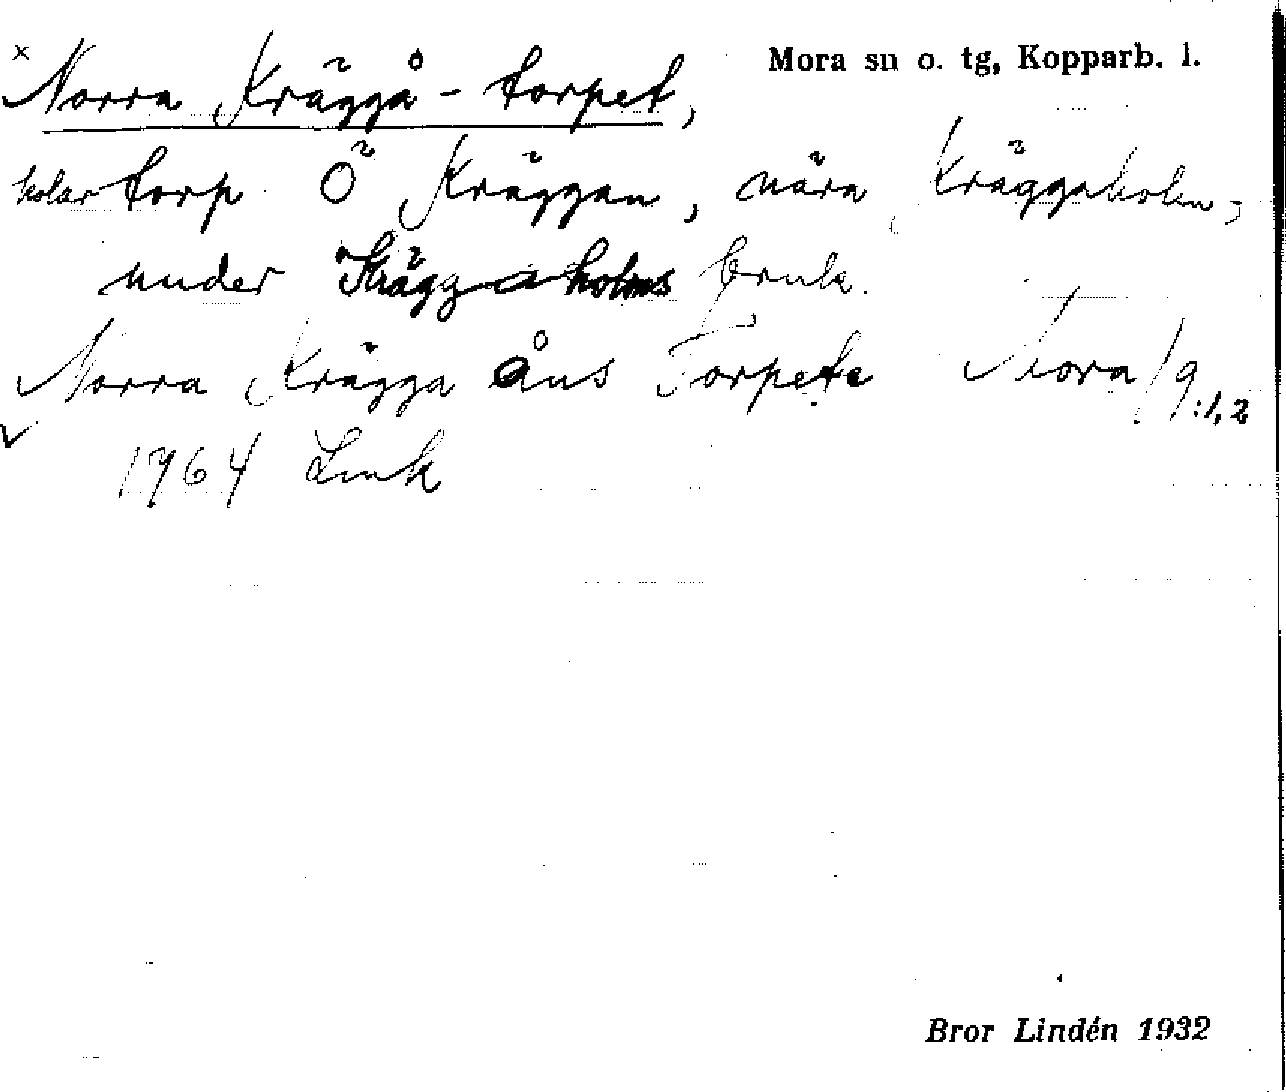 × Norra Kräggå-torpet,
Mora sn o. tg, Kopparb. l.
kolartorp Ö Kräggen, nära Kräggaholm,
under Kräggaholms bruk.
Norra Krägga åns Torpet Mora 19:1,2
1764 Link
Bror Lindén 1932